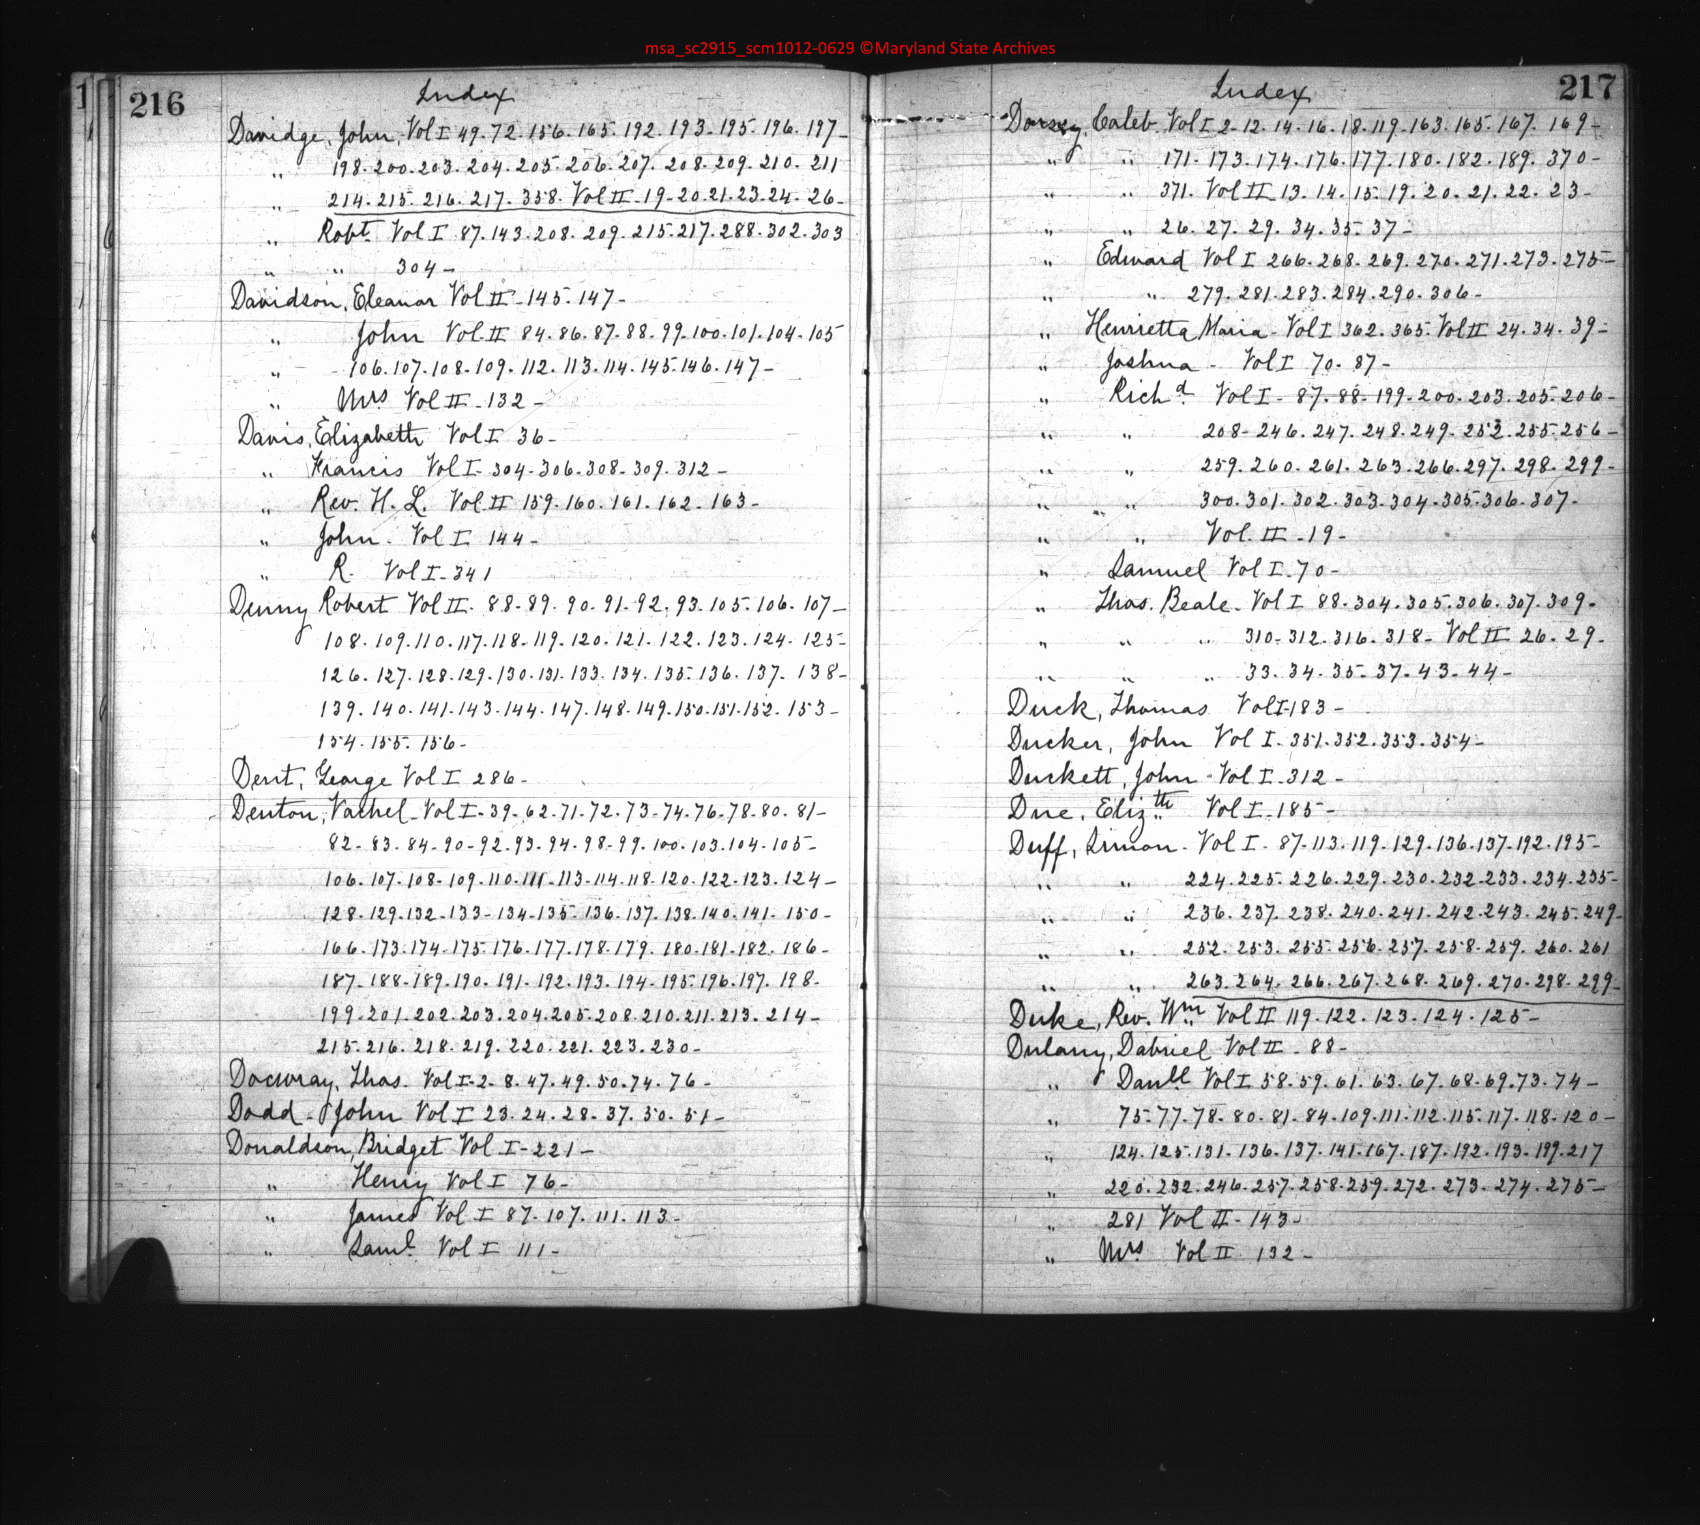 msa_sc2915_scm1012-0629 ©Maryland State Archives
216
Index
Davidge, John, Vol I 49.72.156.165.192.193.195.196.197-
„ 198.200.203.204.205.206.207.208.209.210.211
„ 214.215.216.217.358. Vol II-19-20.21.23.24.26-
„ Robt. Vol I 87.143.208.209.215.217.288.302.303
„ „ 304-
Davidson, Eleanor Vol II-145.147-
„ John Vol II 84.86.87.88.99.100.101.104.105
„ 106.107.108.109.112.113.114.145.146.147-
„ Mrs Vol II-132-
Davis, Elizabeth Vol I 36-
„ Francis Vol I-304.306.308.309.312-
„ Rev. H. L. Vol II 159.160.161.162.163-
„ John. Vol I 144-
„ R. Vol I-341
Denny Robert Vol II. 88.89.90.91.92.93.105.106.107-
108.109.110.117.118.119.120.121.122.123.124.125-
126.127.128.129.130.131.133.134.135.136.137.138-
139.140.141.143.144.147.148.149.150.151.152.153-
154.155.156-
Dent, George Vol I 286-
Denton, Vachel-Vol I-39.62.71.72.73.74.76.78.80.81-
82.83.84.90.92.93.94.98.99.100.103.104.105-
106.107.108.109.110.111.113.114.118.120.122.123.124-
128.129.132.133.134.135.136.137.138.140.141.150-
166.173.174.175.176.177.178.179.180.181.182.186-
187.188.189.190.191.192.193.194.195.196.197.198-
199.201.202.203.204.205.208.210.211.213.214-
215.216.218.219.220.221.223.230-
Docwray, Thos. Vol I-2.8.47.49.50.74.76-
Dodd-John Vol I 23.24.28.37.50.51-
Donaldson, Bridget Vol I-221-
„ Henry Vol I 76-
„ James Vol I 87.107.111.113-
„ Saml. Vol I 111-
217
Index
Dorsey, Caleb Vol I 2.12.14.16.18.119.163.165.167.169-
„ „ 171.173.174.176.177.180.182.189.370-
„ „ 371. Vol II 13.14.15.19.20.21.22.23-
„ „ 26.27.29.34.35.37-
„ Edward Vol I 266.268.269.270.271.273.275-
„ „ 279.281.283.284.290.306-
„ Henrietta Maria-Vol I 362.365. Vol II 24.34.39-
„ Joshua-Vol I 70.87-
„ Richd. Vol I-87.88.199.200.203.205.206-
„ „ 208.246.247.248.249.252.255.256-
„ „ 259.260.261.263.266.297.298.299-
„ „ „ 300.301.302.303.304.305.306.307-
„ „ Vol. II-19-
„ Samuel Vol I-70-
„ Thos. Beale-Vol I 88.304.305.306.307.309-
„ „ „ 310.312.316.318-Vol II 26.29-
„ „ „ 33.34.35.37.43.44-
Duck, Thomas Vol I-183-
Ducker, John Vol I-351.352.353.354-
Duckett, John-Vol I-312-
Due, Elizth Vol I-185-
Duff, Simon-Vol I-87.113.119.129.136.137.192.195-
„ „ 224.225.226.229.230.232.233.234.235-
„ „ 236.237.238.240.241.242.243.245.249-
„ „ 252.253.255.256.257.258.259.260.261
„ „ 263.264.266.267.268.269.270.298.299-
Duke, Rev. Wm Vol II 119.122.123.124.125-
Dulany, Dabriel Vol II-88-
„ Danll Vol I 58.59.61.63.67.68.69.73.74-
„ 75.77.78.80.81.84.109.111.112.115.117.118.120-
„ 124.125.131.136.137.141.167.187.192.193.199.217
„ 220.232.246.257.258.259.272.273.274.275-
„ 281 Vol II-143-
„ Mrs Vol II 132-